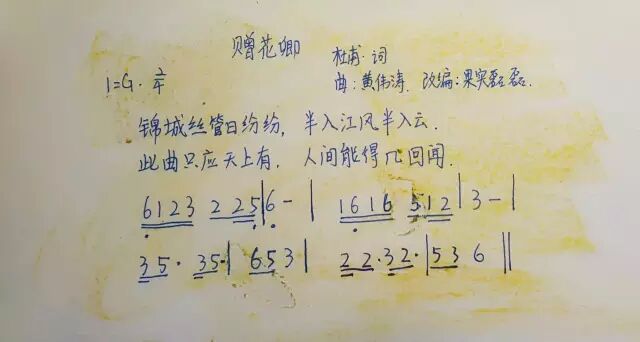 赠花卿 杜甫·词
1=G· 2/4 曲:黄伟涛. 改编:果实磊磊.
锦城丝管日纷纷, 半入江风半入云.
此曲只应天上有, 人间能得几回闻.
6123 225|6-| 1616 512|3-|
35· 35·| 653| 22·32·|53 6||